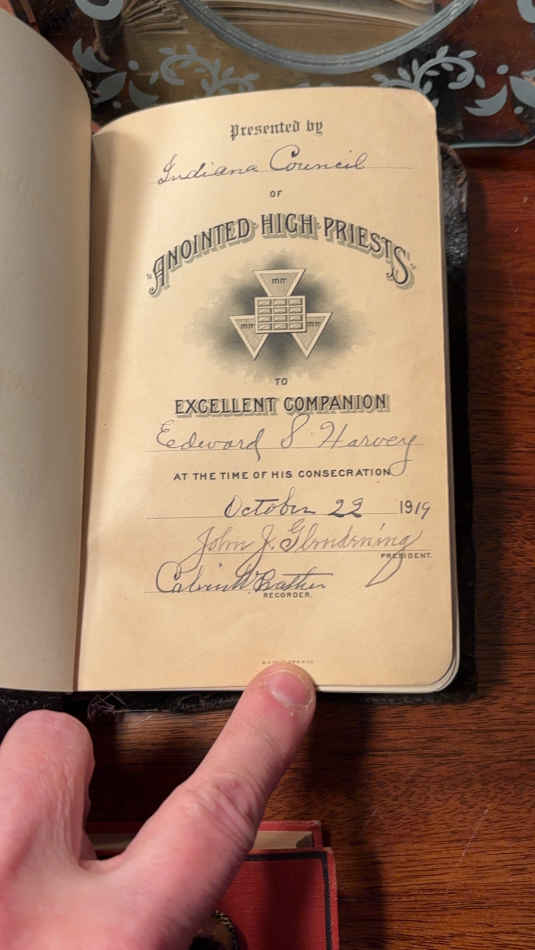 Presented by
Indiana Council
OF
"ANOINTED HIGH PRIESTS"
TO
EXCELLENT COMPANION
Edward S. Harvey
AT THE TIME OF HIS CONSECRATION
October 22 1919
John J. Glendening
PRESIDENT.
Calvin W. Prather
RECORDER.